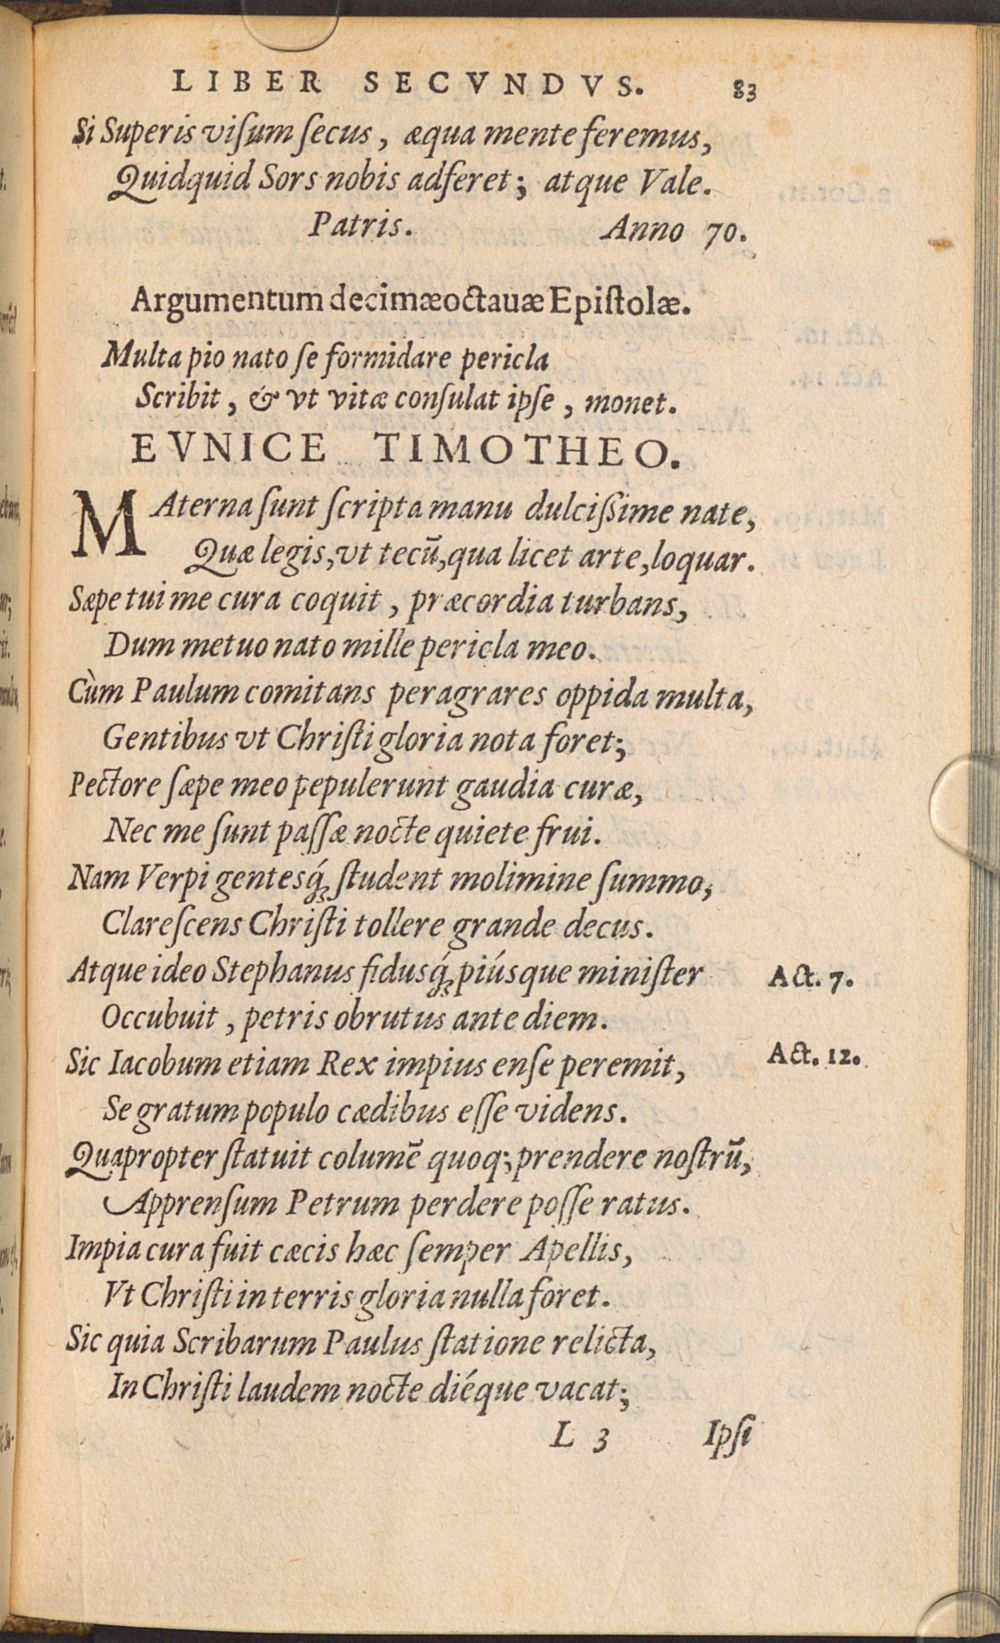 LIBER SECVNDVS. 83
Si Superis viſum ſecus, æqua mente feremus,
Quidquid Sors nobis adferet; atque Vale.
Patris. Anno 70.
Argumentum decimæoctauæ Epiſtolæ.
Multa pio nato ſe formidare pericla
Scribit, & vt vitæ conſulat ipſe, monet.
EVNICE TIMOTHEO.
MAterna ſunt ſcripta manu dulciſſime nate,
Quæ legis, vt tecū, qua licet arte, loquar.
Sæpe tui me cura coquit, præcordia turbans,
Dum metuo nato mille pericla meo.
Cùm Paulum comitans peragrares oppida multa,
Gentibus vt Chriſti gloria nota foret;
Pectore ſæpe meo pepulerunt gaudia curæ,
Nec me ſunt paſſæ nocte quiete frui.
Nam Verpi gentesq́; ſtudent molimine ſummo,
Clareſcens Chriſti tollere grande decus.
Atque ideo Stephanus fidusq́; piúsque miniſter Act. 7.
Occubuit, petris obrutus ante diem.
Sic Iacobum etiam Rex impius enſe peremit, Act. 12.
Se gratum populo cædibus eſſe videns.
Quapropter ſtatuit columē quoq; prendere noſtrū,
Apprenſum Petrum perdere poſſe ratus.
Impia cura fuit cæcis hæc ſemper Apellis,
Vt Chriſti in terris gloria nulla foret.
Sic quia Scribarum Paulus ſtatione relicta,
In Chriſti laudem nocte diéque vacat;
L 3 Ipſi